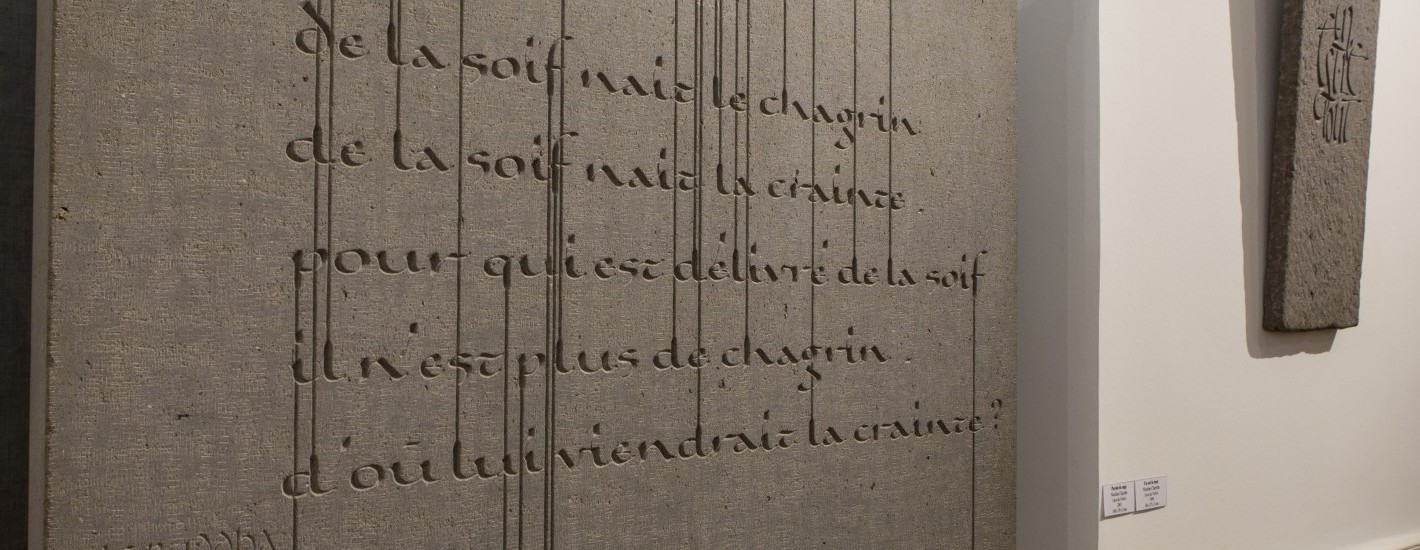 de la soif nait le chagrin
de la soif nait la crainte.
pour qui est délivré de la soif
il n'est plus de chagrin.
d'où lui viendrait la crainte?